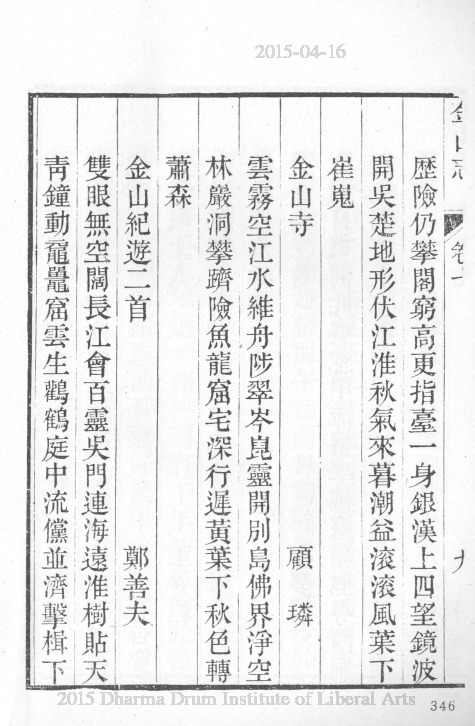 2015-04-16
金山志 卷七 九
歷險仍攀閣窮高更指臺一身銀漢上四望鏡波
開吳楚地形伏江淮秋氣來暮潮益滾滾風葉下
崔嵬
金山寺 顧璘
雲霧空江水維舟陟翠岑崑靈開別島佛界淨空
林巖洞攀躋險魚龍窟宅深行遲黃葉下秋色轉
蕭森
金山紀遊二首 鄭善夫
雙眼無空闊長江會百靈吳門連海遠淮樹貼天
靑鐘動黿鼉窟雲生鸛鶴庭中流儻並濟擊楫下
2015 Dharma Drum Institute of Liberal Arts
346